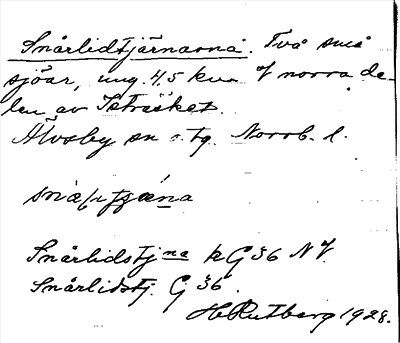 Snårlidtjärnarna. Två små
sjöar, ung. 4,5 km V norra de-
len av Isträsket.
Älvsby sn o. tg. Norrb. l.
Snårlidstjna kG 36 NV.
Snårlidstj. G 36.
H Rutberg 1928.